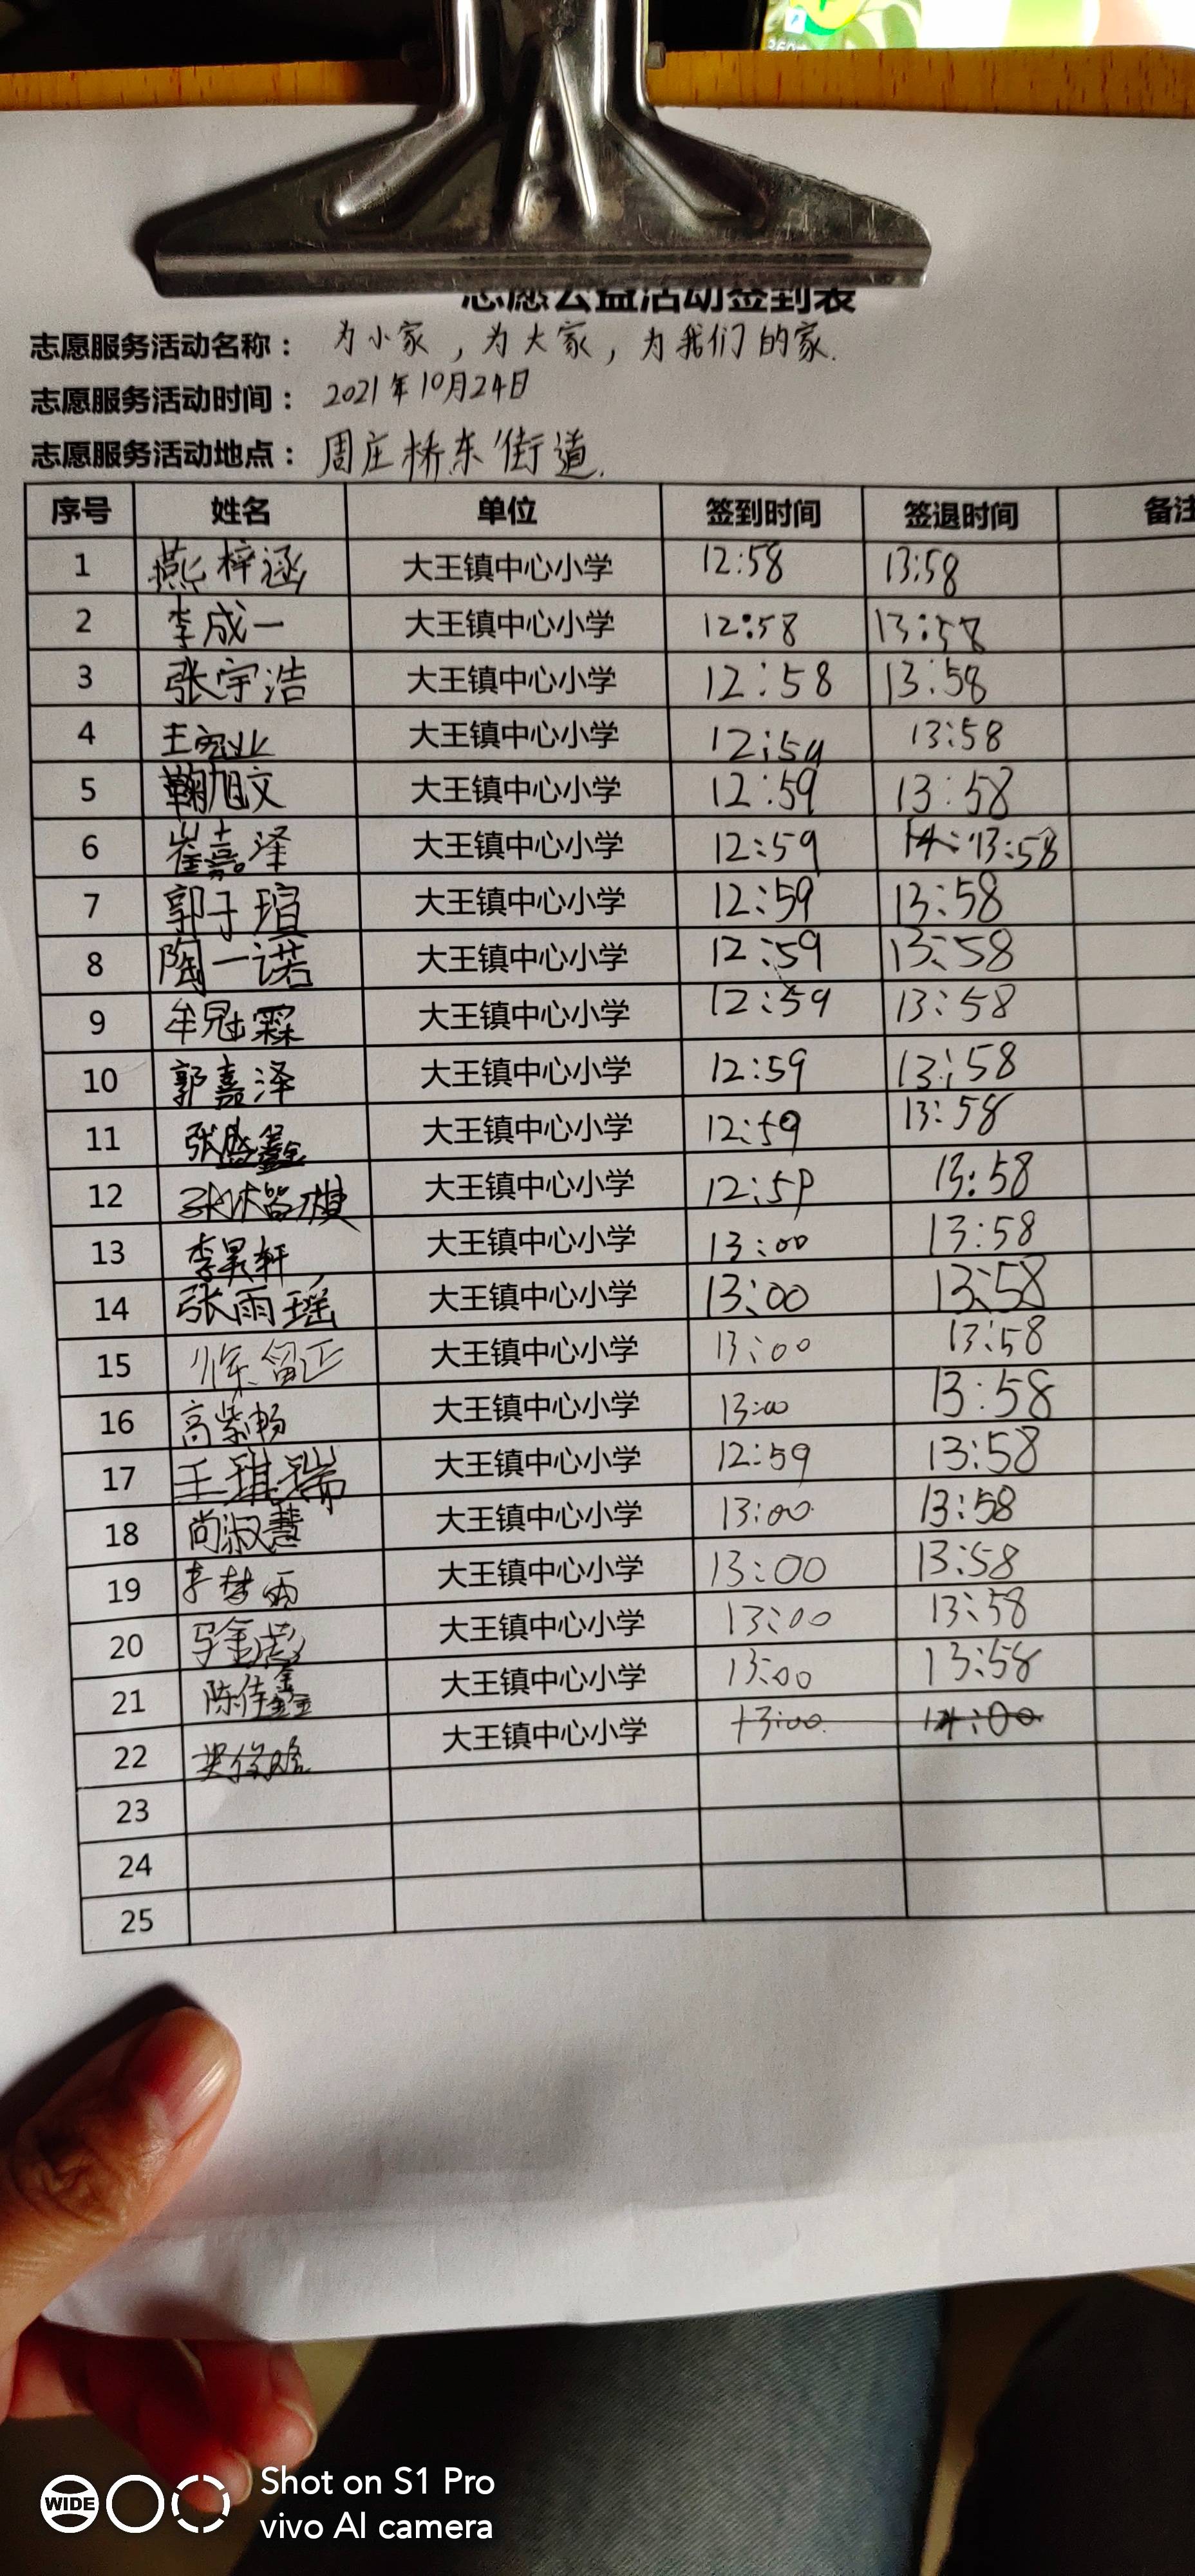 志愿公益活动签到表
志愿服务活动名称： 为小家，为大家，为我们的家.
志愿服务活动时间： 2021年10月24日
志愿服务活动地点： 周庄桥东街道.
序号 姓名 单位 签到时间 签退时间 备注
1 燕梓涵 大王镇中心小学 12:58 13:58
2 李成一 大王镇中心小学 12:58 13:58
3 张宇浩 大王镇中心小学 12:58 13:58
4 王宏业 大王镇中心小学 12:59 13:58
5 鞠旭文 大王镇中心小学 12:59 13:58
6 崔嘉泽 大王镇中心小学 12:59 13:58
7 郭子瑄 大王镇中心小学 12:59 13:58
8 陶一诺 大王镇中心小学 12:59 13:58
9 牟冠霖 大王镇中心小学 12:59 13:58
10 郭嘉泽 大王镇中心小学 12:59 13:58
11 张盛鑫 大王镇中心小学 12:59 13:58
12 大王镇中心小学 12:59 13:58
13 李昊轩 大王镇中心小学 13:00 13:58
14 张雨瑶 大王镇中心小学 13:00 13:58
15 大王镇中心小学 13:00 13:58
16 高紫畅 大王镇中心小学 13:00 13:58
17 王琪瑞 大王镇中心小学 12:59 13:58
18 尚淑慧 大王镇中心小学 13:00 13:58
19 李梦雨 大王镇中心小学 13:00 13:58
20 大王镇中心小学 13:00 13:58
21 陈佳鑫 大王镇中心小学 13:00 13:58
22 大王镇中心小学 13:00 14:00
23
24
25
WIDE
Shot on S1 Pro
vivo AI camera